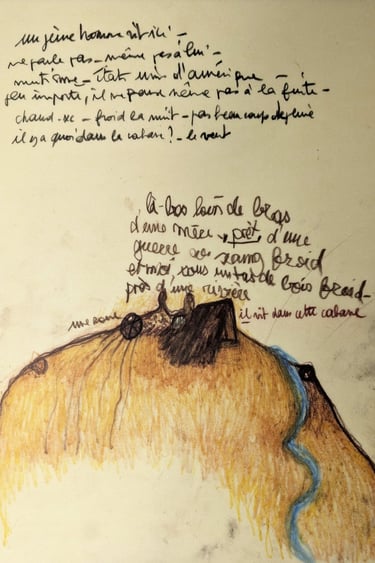 un jeune homme vit ici -
ne parle pas - même pas à lui -
mutisme - État unis d'amérique -
peu importe, il ne pense même pas à la fuite -
chaud-sec - froid la nuit - pas beaucoup de pluie
il y a quoi dans la cabane? - le vent
là-bas loin de bras
d'une mère, prêt d'une
guerre de sang froid
et moi, sous un tas de bois froid -
près d'une rivière
une roue
il vit dans cette cabane